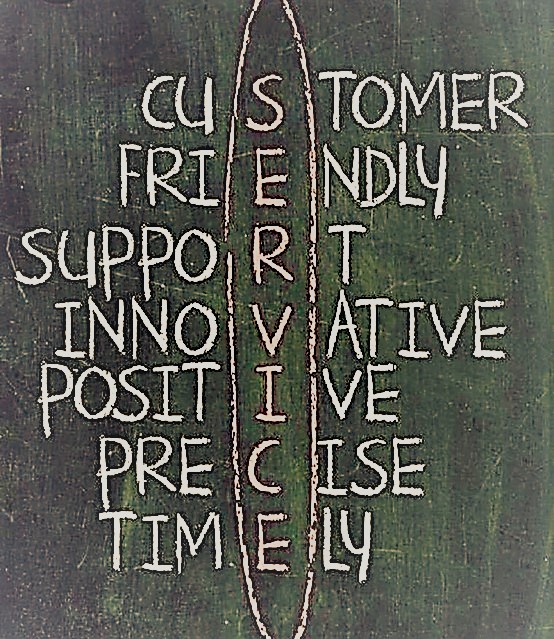 CUSTOMER
FRIENDLY
SUPPORT
INNOVATIVE
POSITIVE
PRECISE
TIMELY